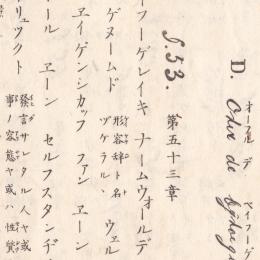 オーフル デ バイフーゲ
D. Over de bijvoeg
§.53. 第五十三章
イフーゲレイキ ナームウォールデ
ゲヌームド 形容辞ト名ヅケラル、 ウェル
ヱイゲンシカップ ファン ヱーン
ール ヱーン セルフスタンヂ
リュックト 發言サレタル人ヤ或事ノ容態ヤ或ハ性質